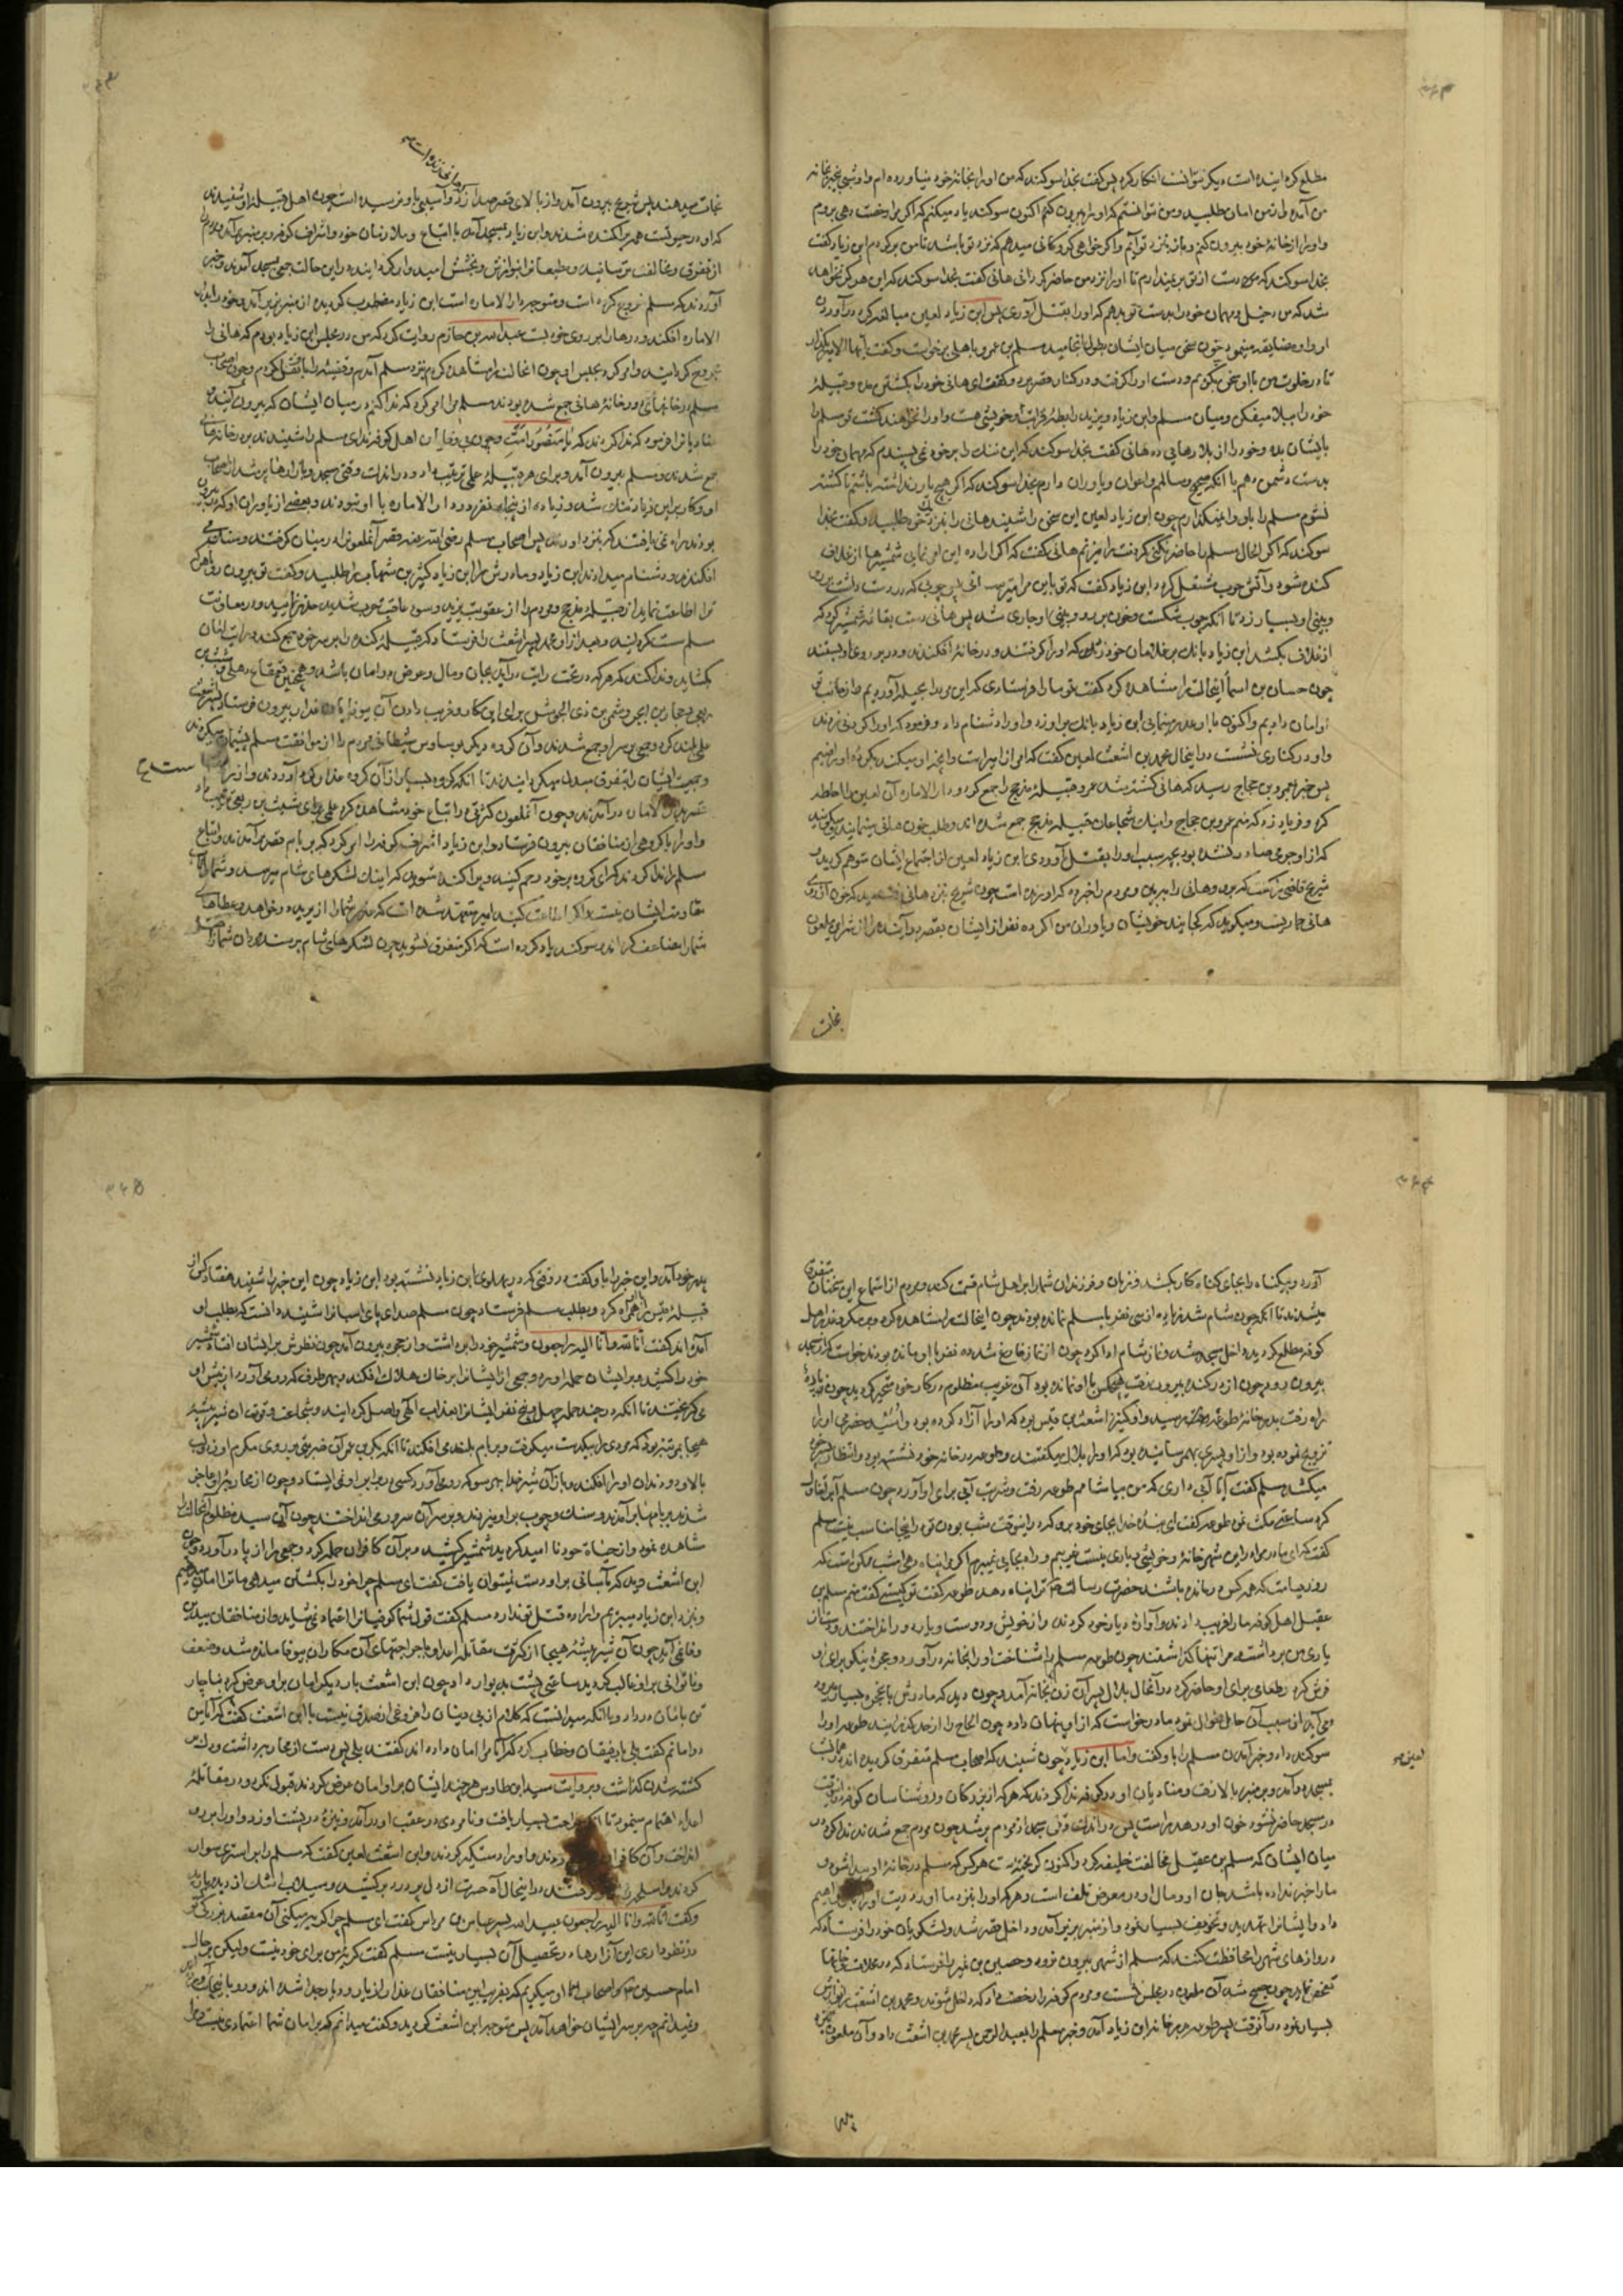 مطلع کرد اینده است دیگر نتوانست انکار کرد پس گفت بخدا سوکند که من او را بخانه خود نیاورده ام
من آمد و از من امان طلبید و من نتوانستم که او را بیرون کنم اکنون سوکند یاد میکنم که اگر مرا رخصت دهی بروم
و او را از خانه خود بیرون کنم و باز بنزد تو آیم و اگر خواهی کروکانی میدهم که نزد تو باشد تا من برگردم ابن زیاد گفت
بخدا سوکند که دست از تو بر نمیدارم تا او را نزد من حاضر گردانی هانی گفت بخدا سوکند که این هرگز نخواهد
شد که من دخیل و مهمان خود را بدست تو بدهم که او را بقتل آوری پس ابن زیاد لعین مبالغه کرد در آوردن
او و او مضایقه مینمود چون سخن میان ایشان بطول انجامید مسلم بن عمرو باهلی برخواست و گفت ایها الامیر بگذار
تا در خلوت من با او سخن بگویم و دست او را گرفت و در کنار قصر برد و گفت ای هانی خود را بکشتن مده و قبیله
خود را ببلا میفکن و میان مسلم و ابن زیاد و یزید رابطه قرابت و خویشی هست و او را نخواهند کشت تو مسلم را
بایشان بده و خود را از بلا رهایی ده هانی گفت بخدا سوکند که این ننک را بر خود نمی پسندم که مهمان خود را
بدست دشمن دهم با آنکه صحیح و سالم و اعوان و یاوران دارم بخدا سوکند که اگر هیچ یاور نداشته باشم تا کشته
نشوم مسلم را باو وا نمیگذارم چون ابن زیاد لعین این سخن را شنید هانی را بنزد خود طلبید و گفت بخدا
سوکند که اگر الحال مسلم را حاضر نکنی گردنت را میزنم هانی گفت که اگر اراده این امر نمایی شمشیرها از غلاف
کنده شود و آتش حرب مشتعل گردد ابن زیاد گفت که تو باین مرا میترسانی پس چوبی که در دست داشت بر رو
و بینی او بسیار زد تا آنکه چوب شکست و خون بر رو و بینی او جاری شد پس هانی دست بقائمه شمشیر کرد که
از غلاف بکشد ابن زیاد بانک بر غلامان خود زد که او را گرفتند و در خانه افکندند و در بر روی او بستند
چون حسان بن اسما اینحالت را مشاهده کرد گفت تو ما را فرستادی که این مرد را بحیله آوردیم و از جانب تو
او را امان دادیم و اکنون با او غدر مینمائی ابن زیاد بانک بر او زد و او را دشنام داد و فرمود که او را گردنی زدند
و او در کناری نشست در اینحال محمد بن اشعث لعین گفت که امر از امیر است و آنچه او میکند بکرده او راضیم
پس خبر بعمرو بن حجاج رسید که هانی کشته شد عمرو قبیله مذحج را جمع کرد و دار الاماره آن لعین را احاطه
کرد و فریاد زد که منم عمرو بن حجاج و اینک شجاعان قبیله مذحج جمع شده اند و طلب خون هانی مینمایند
که از او جرمی صادر نشده بود بچه سبب او را بقتل آوردی ابن زیاد لعین از اجتماع ایشان متوهم گردید و
شریح قاضی را گفت که برو و هانی را ببین و مردم را خبر ده که او زنده است چون شریح بنزد هانی آمد دید که خون از روی
هانی جاریست و میگوید که کجایند خویشان و یاوران من اگر ده نفر از ایشان بقصر در آیند مرا از شر این ملعون
نجات
نجات میدهند پس شریح بیرون آمد و از بالای قصر صدا زد که
و آسیبی باو نرسیده است چون اهل قبیله او شنیدند
که او در حیوتست همه پراکنده شدند و ابن زیاد بمسجد آمد با اتباع و ملازمان خود و اشراف کوفه و بر منبر بر آمد و مردم را
از تفرق و مخالفت ترسانید و مطیعان را بنوازش و بخشش امیدوار کرد اینده در این حالت جمعی بمسجد آمدند و خبر
آوردند که مسلم خروج کرده است و متوجه دار الاماره است ابن زیاد مضطرب گردیده از منبر بزیر آمد و خود را بدار
الاماره افکند و درها را بر روی خود بست عبدالله بن حازم روایت کرد که من در مجلس ابن زیاد بودم که هانی را
مجروح گردانید و امر کرد بحبس او چون آن حالت را مشاهده کردم بنزد مسلم آمدم و قضیه را باو نقل کردم و چون اصحاب
مسلم در خانهای دور خانه هانی جمع شده بودند مسلم مرا امر کرد که ندا کنم در میان ایشان که بیرون آیند
منادیان را فرمود که ندا کردند که یا منصور امت چون بی وفایان اهل کوفه ندای مسلم را شنیدند بر در خانه هانی
جمع شدند و مسلم بیرون آمد و برای هر قبیله علمی ترتیب داد و در اندک وقتی مسجد و بازارها پر شد از اصحاب
او و کار بر ابن زیاد تنک شد و زیاده از پنجاه نفر در دار الاماره با او نبودند و بعضی از یاوران او که بیرون
بودند راه نمی یافتند که بنزد او روند پس اصحاب مسلم رضی الله عنه قصر آنملعون را در میان گرفتند و سنک
افکندند و دشنام میدادند ابن زیاد و مادرش را ابن زیاد کثیر بن شهاب را طلبید و گفت تو بیرون رو و هر که
ترا اطاعت نماید از قبیله مذحج و مردم را از عقوبت یزید و سوء عاقبت حرب شدید حذر فرمایید و در معاونت
مسلم سست گردانید و بعد از او محمد پسر اشعث را فرستاد که قبیله کنده را بر سر خود جمع کند و رایت امان
بگشاید و ندا کند که هر که در تحت رایت در آید بجان و مال و عرض در امان باشد و همچنین قعقاع ذهلی و شبث بن
ربعی و حجار بن ابجر و شمر بن ذی الجوشن برای این کار و فریب دادن آن بیوفایان غدار بیرون فرستاد
علمی بلند کرد و جمعی بر سر او جمع شدند و آن گروه دیگر بوساوس شیطانی مردم را از موافقت مسلم پشیمان میکردند
و جمعیت ایشان را بتفرق مبدل میکردانیدند تا آنکه گروه بسیار از آن گروه غدار را گرد آوردند و از راه
در آمدند و چون آنملعون کثرتی در اتباع خود مشاهده کرد علمی برای شبث بن ربعی ترتیب داد
و او را با گروهی از منافقان بیرون فرستاد و ابن زیاد اشراف کوفه را امر کرد که بر بام قصر بر آمدند و اتباع
مسلم را ندا کردند که ای گروه بر خود رحم کنید و پراکنده شوید که اینک لشکرهای شام میرسد و شما را تاب
مقاومت ایشان نیست و اگر اطاعت کنید امیر متعهد شده است که عذر شما را از یزید بخواهد و عطاهای
شما را مضاعف گرداند و سوکند یاد کرده است که اگر متفرق نشوید چون لشکرهای شام برسند مردان شما را
آورد و بیگناه را بجای گناهکار بکشد و زنان و فرزندان شما را بر اهل شام قسمت کند و مردم از استماع این سخنان متفرق
میشدند تا آنکه چون شام شد زیاده از سی نفر با مسلم نمانده بودند چون اینحالت را مشاهده کرد و مکر و غدر اهل
کوفه مطلع گردید داخل مسجد شد و نماز شام ادا کرد چون از نماز فارغ شد ده نفر با او مانده بودند خواست که از مسجد
بیرون رود چون از در کنده بیرون رفت هیچکس با او نمانده بود آن غریب مظلوم در کار خود متحیر گردید چون پاره
راه رفت بدر خانه طوعه رسید و او کنیز اشعث بن قیس بود که او را آزاد کرده بود و اسید حضرمی او را
تزویج نموده بود و از او پسری بهم رسانیده بود که او را بلال میگفتند و طوعه در خانه خود نشسته بود و انتظار پسر خود
میکشید مسلم گفت آیا آبی داری که من بیاشامم طوعه رفت و شربت آبی برای او آورد چون مسلم آب تناول
کرد ساعتی مکث نمود طوعه گفت ای بنده خدا بجای خود برو که در اینوقت شب بودن تو در اینجا مناسب نیست مسلم
گفت که ای مادر مرا در این شهر خانه و خویشی و یاری نیست غریبم و راه بجایی نمیبرم اگر مرا پناه دهی امشب ممکن است که
روز قیامت که همه کس درمانده باشند حضرت رسالت ترا پناه دهد طوعه گفت تو کیستی گفت منم مسلم بن
عقیل اهل کوفه مرا فریب دادند و آواره دیار خود کردند و از خویش و دوست و یار دور انداختند و دست از
یاری من برداشته مرا تنها گذاشتند چون طوعه مسلم را شناخت او را بخانه در آورد و حجره نیکو برای او
فرش کرد و طعامی برای او حاضر کرد در آنحال بلال پسر آن زن بخانه آمد و چون دید که مادرش باین حجره بسیار میرود
و می آید از سبب آن حال سؤال نمود مادر خواست که از او پنهان دارد چون الحاح را از حد گذرانید طوعه او را
سوکند داد و خبر آمدن مسلم را باو گفت و اما ابن زیاد چون شنید که اصحاب مسلم متفرق گردیده اند همان شب
بمسجد در آمد و بر منبر بالا رفت و منادیان او در کوفه ندا کردند که هر که از بزرکان و روشناسان کوفه در اینوقت
در مسجد حاضر نشود خون او هدر است پس در اندک وقتی مسجد از مردم پر شد چون مردم جمع شدند ندا کرد در
میان ایشان که مسلم بن عقیل مخالفت خلیفه کرد و اکنون گریخته است هر کس که مسلم در خانه او پیدا شود و
ما را خبر نداده باشد جان او و مال او در معرض تلف است و هر که او را بنزد ما آورد دیت او را باو میدهیم
داد و ایشان را تهدید و تخویف بسیار نمود و از منبر بزیر آمد و داخل قصر شد و لشکریان خود را فرستاد که
دروازهای شهر را محافظت کنند که مسلم از شهر بیرون نرود و حصین بن نمیر را فرستاد که در محلات و خانها
تفحص نماید چون صبح شد آن ملعون در مجلس نشست و مردم کوفه را رخصت داد که داخل شوند و محمد بن اشعث را نوازش
بسیار نمود در آنوقت پسر طوعه بدر خانه ابن زیاد آمد و خبر مسلم را بعبد الرحمن پسر محمد بن اشعث داد و آن ملعون بنزد
بدر
پدر خود آمد و این خبر را باو گفت در وقتی که در پهلوی ابن زیاد نشسته بود ابن زیاد چون این خبر را شنید هفتاد کس از
قبیله قیس را همراه کرد و بطلب مسلم فرستاد چون مسلم صدای پای اسبان را شنید دانست که بطلب او
آمده اند گفت انا لله و انا الیه راجعون و شمشیر خود را برداشت و از حجره بیرون آمد چون نظرش بر ایشان افتاد شمشیر
خود را کشید و بر ایشان حمله آورد و جمعی از ایشان را بر خاک هلاک افکند و بهر طرف که رو می آورد از پیش او
می گریختند تا آنکه در چند حمله چهل و پنج نفر ایشان را بعذاب الهی واصل گردانید و شجاعت و قوت آن شیر بیشه
هیجا بمرتبه بود که مردی را بیکدست میگرفت و بر بام بلند می افکند تا آنکه بکر بن حمران ضربتی بر روی مکرم او زد و لب
بالا و دو دندان او را افکند و باز آن شیر خدا بهر سو که رو می آورد کسی در برابر او نمی ایستاد و چون از محاربه او عاجز
شدند بر بامها بر آمدند و سنک و چوب بر او میزدند و بر سر آن سرور می انداختند چون آن سید مظلوم آنحال را
مشاهده نمود و از حیاة خود نا امید گردید شمشیر کشید و بر آن کافران حمله کرد و جمعی را از پا در آورد و چون
ابن اشعث دید که بآسانی بر او دست نمیتوان یافت گفت ای مسلم چرا خود را بکشتن میدهی ما ترا امان میدهیم
و بنزد ابن زیاد میبریم و او اراده قتل تو ندارد مسلم گفت قول شما کوفیان را اعتماد نمیشاید و از منافقان بیدین
وفا نمی آید چون آن شیر بیشه هیجا از کثرت مقاتله اعدا و جراحتهای آن مکاران بیوفا مانده شد و ضعف
و ناتوانی بر او غالب گردید ساعتی پشت بدیوار داد چون ابن اشعث بار دیگر امان بر او عرض کرد بناچار
تن بامان در داد و با آنکه میدانست که کلام آن بی دینان را فروغی از صدق نیست با ابن اشعث گفت که آیا من
در امانم گفت بلی با رفیقان او خطاب کرد که آیا مرا امان داده اند گفتند بلی پس دست از محاربه برداشت و دل بر
کشته شدن گذاشت و بروایت سید ابن طاوس هر چند ایشان بر او امان عرض کردند قبول نکرد و در مقاتله
اعداء اهتمام مینمود تا آنکه جراحت بسیار یافت و نامردی از عقب او در آمد و نیزه بر پشت او زد و او را بر رو
انداخت و آن کافران
او را دستگیر کردند و ابن اشعث لعین گفت که مسلم را بر استری سوار
کردند و اسلحه
در اینحال آه حسرت از دل پر درد بر کشید و سیلاب اشک از دیده بارید
و گفت انا لله و انا الیه راجعون عبید الله پسر عباس بن مرداس گفت ای مسلم چرا گریه میکنی آن مقصد بزرگ که
در نظر داری این آزارها در تحصیل آن بسیار نیست مسلم گفت گریه من برای خود نیست ولیکن بر حال
امام حسین و اصحاب او میگریم که بفریب این منافقان غدار از یار و دیار جدا شده اند و رو باینجانب آورده اند
و نمیدانم چه بر سر ایشان خواهد آمد پس متوجه ابن اشعث گردید و گفت میدانم که بر امان شما اعتمادی نیست